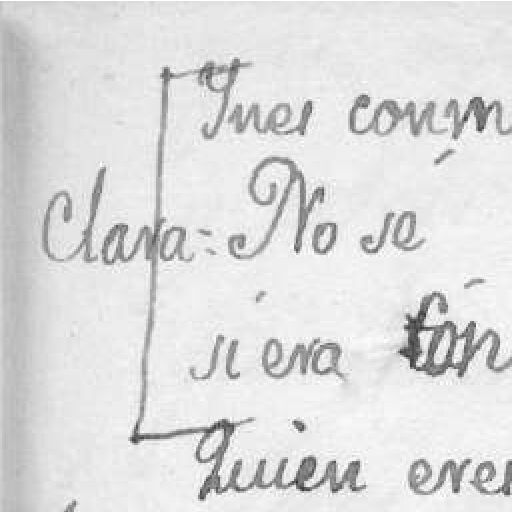 Ines conm
Clara:- No sé
si era fán
Quien eres